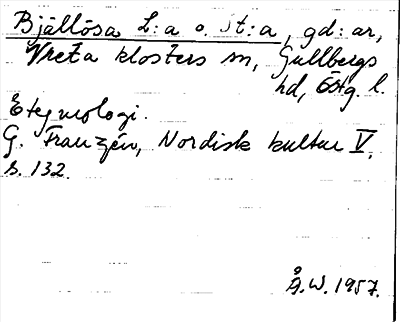 Bjällösa L:a o. St:a, gd:ar,
Vreta klosters sn, Gullbergs
hd, Östg. l.
Etymologi.
G. Franzén, Nordisk kultur V,
s. 132.
Å.W. 1957.